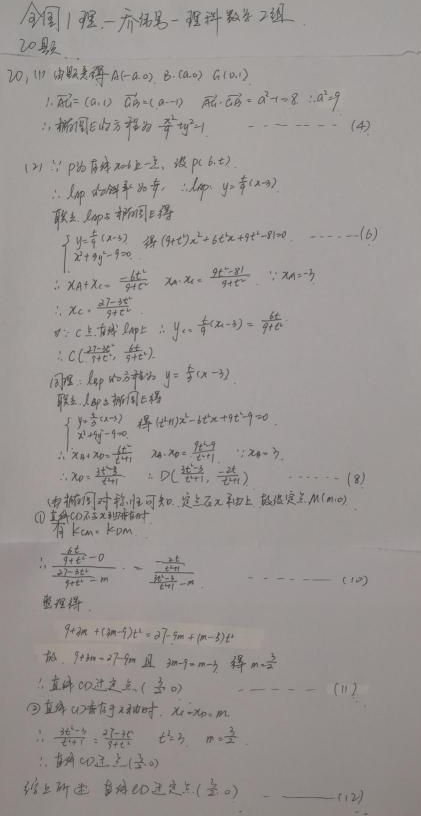 全国1理-乔伟男-理科数学2组
20题
20, (1) 由题意得 A(-a.0) B.(a.0) G(0.1)
∴ AG=(a,1) GB=(a.-1) AG·GB=a²-1=8 ∴a²=9
∴椭圆E的方程为 x²/9+y²=1 -------(4)
(2) ∵ P为直线x=6上一点、设P(6.t)
∴ lAP的斜率为t/9, ∴lAP: y=t/9(x-3)
联立lAP与椭圆E得
{ y=t/9(x-3) 得(9+t²)x²+6t²x+9t²-81=0 ------(6)
x²+9y²-9=0
∴ xA+xC=-6t²/9+t² xA·xC=9t²-81/9+t² ∵xA=-3
∴ xC=27-3t²/9+t²
又∵C点在直线lAP上 ∴ yC=t/9(xC-3)=6t/9+t²
∴C(27-3t²/9+t², 6t/9+t²)
同理: lBP的方程为 y=t/3(x-3)
联立lBP与椭圆E得
{ y=t/3(x-3) 得(t²+1)x²-6t²x+9t²-9=0
x²+9y²-9=0
∴xB+xD=6t²/t²+1 xB·xD=9t²-9/t²+1 ∵xB=3
∴xD=3t²-3/t²+1 ∴D(3t²-3/t²+1, -2t/t²+1) ------(8)
由椭圆对称性可知.定点在x轴上,故设定点M(m.0)
①直线CD不与x轴垂直时
有 KCM=KDM
∴ 6t/9+t²-0/27-3t²/9+t²-m = 2t/t²+1/3t²-3/t²+1-m -------(10)
整理得
9+3m+(3m-9)t²=27-9m+(m-3)t²
故 9+3m=27-9m 且 3m-9=m-3 得m=3/2
∴直线CD过定点(3/2.0) ------(11)
②直线CD垂直于x轴时. xC=xD=m
∴ 3t²-3/t²+1=27-3t²/9+t² t²=3 m=3/2
∴直线CD过点(3/2.0)
综上所述 直线CD过定点(3/2.0) -------(12)